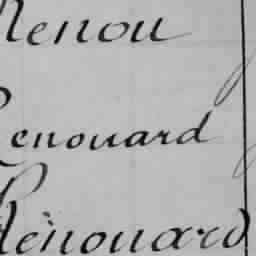 Renou
Renouard
Rénouard